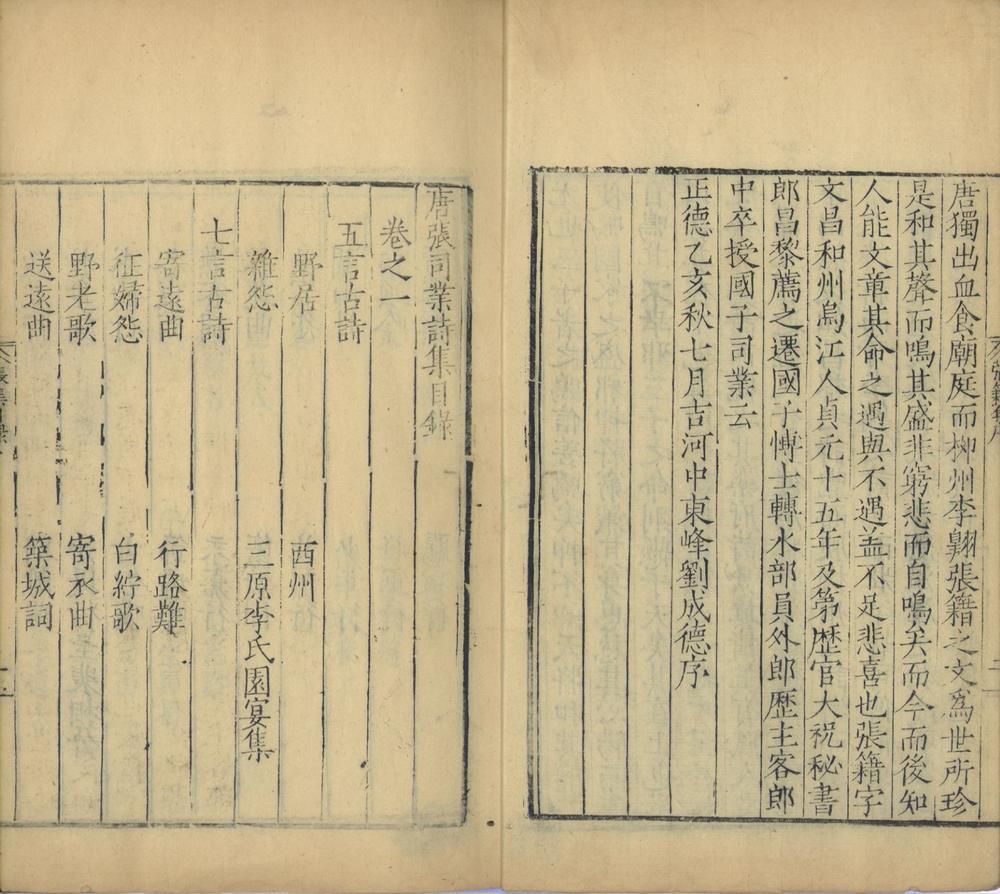 唐獨出血食廟庭而柳州李翺張籍之文爲世所珍
是和其聲而鳴其盛非窮悲而自鳴矣而今而後知
人能文章其命之遇與不遇盖不足悲喜也張籍字
文昌和州烏江人貞元十五年及第歴官大祝秘書
郎昌黎薦之遷國子愽士轉水部員外郎歴主客郎
中卒授國子司業云
正德乙亥秋七月吉河中東峰劉成德序
唐張司業詩集目錄
卷之一
五言古詩
野居 西州
雜怨 三原李氏園宴集
七言古詩
寄遠曲 行路難
征婦怨 白紵歌
野老歌 寄衣曲
送遠曲 築城詞